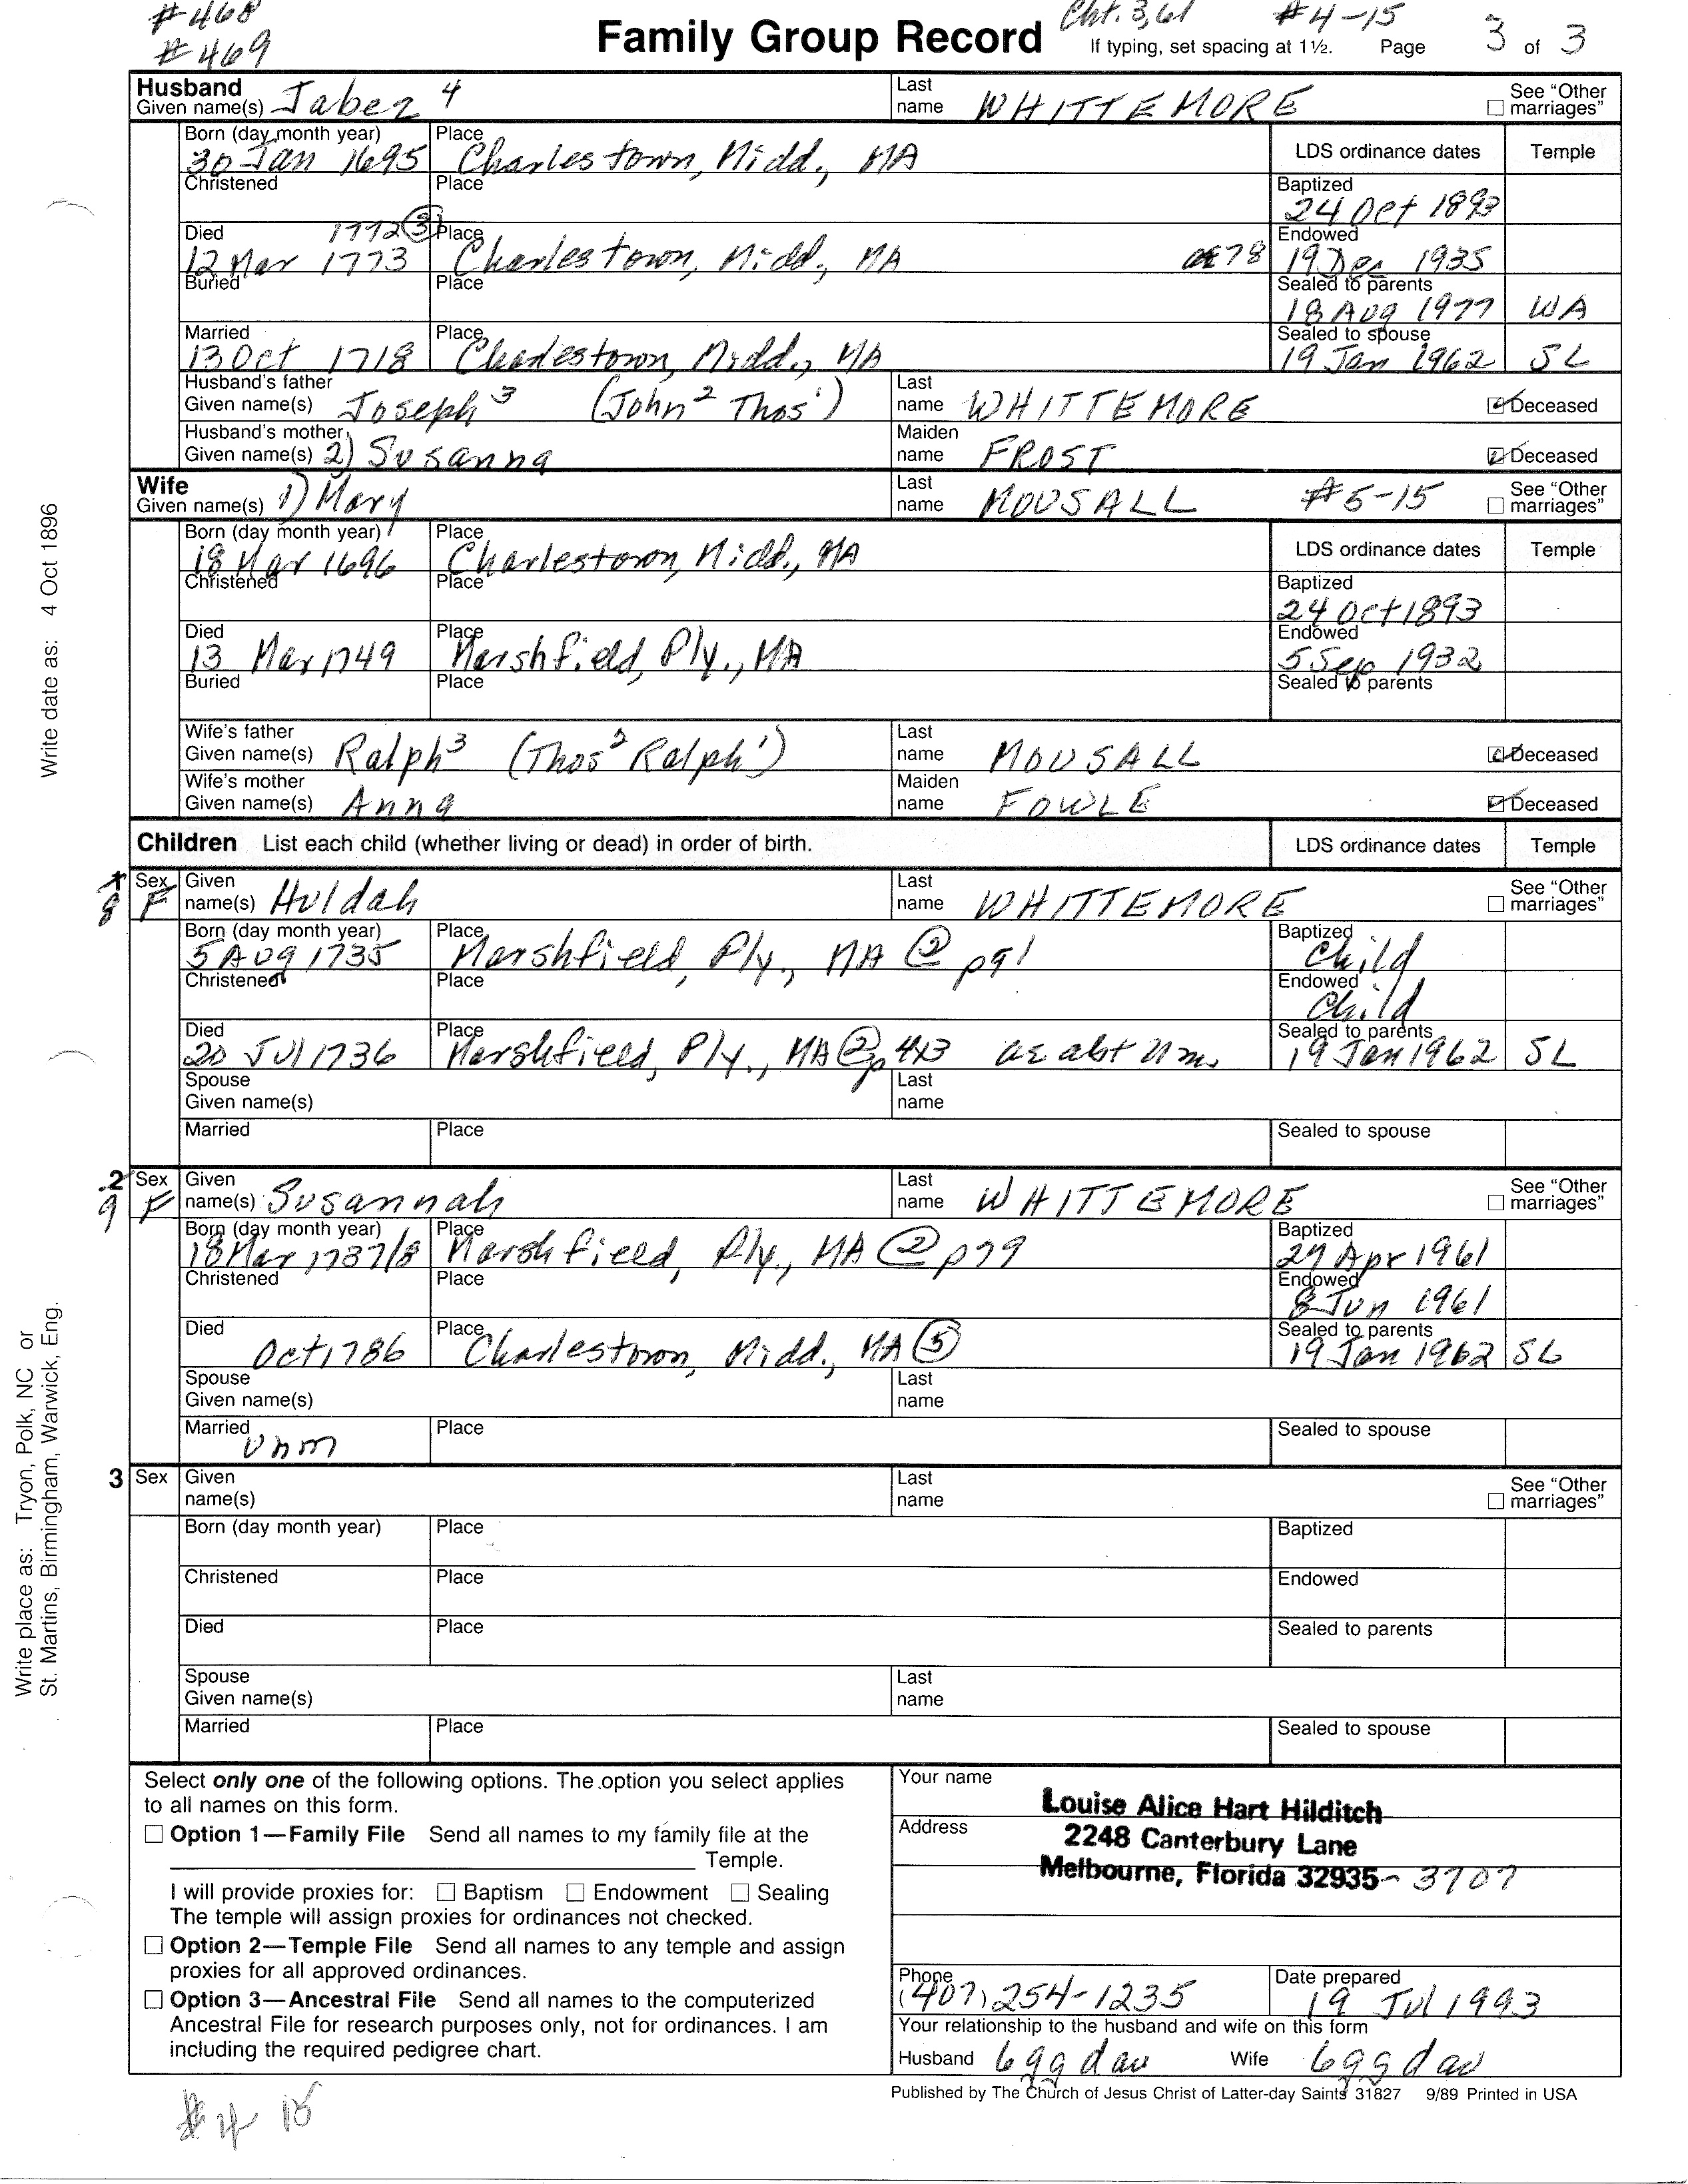 #468 Cht. 3,61 #4-15
#469 Family Group Record If typing, set spacing at 1½. Page 3 of 3
Husband
Given name(s) Jabez 4 Last name WHITTEMORE See "Other marriages"
Born (day month year) Place LDS ordinance dates Temple
30 Jan 1695 Charlestown, Midd., MA
Christened Place Baptized
24 Oct 1893
Died 1772 (3) Place Endowed
12 Mar 1773 Charlestown, Midd., MA ae 78 19 Dec 1935
Buried Place Sealed to parents
18 Aug 1977 WA
Married Place Sealed to spouse
13 Oct 1718 Charlestown, Midd., MA 19 Jan 1962 SL
Husband's father Last
Given name(s) Joseph³ (John² Thos¹) name WHITTEMORE Deceased
Husband's mother Maiden
Given name(s) 2) Susanna name FROST Deceased
Wife
Given name(s) 1) Mary Last name MOUSALL #5-15 See "Other marriages"
Born (day month year) Place LDS ordinance dates Temple
18 Mar 1696 Charlestown, Midd., MA
Christened Place Baptized
24 Oct 1893
Died Place Endowed
13 Mar 1749 Marshfield, Ply., MA 5 Sep 1932
Buried Place Sealed to parents
Wife's father Last
Given name(s) Ralph³ (Thos² Ralph¹) name MOUSALL Deceased
Wife's mother Maiden
Given name(s) Anna name FOWLE Deceased
Children List each child (whether living or dead) in order of birth. LDS ordinance dates Temple
1 Sex Given Last See "Other
8 F name(s) Huldah name WHITTEMORE marriages"
Born (day month year) Place Baptized
5 Aug 1735 Marshfield, Ply., MA @ pg1 Child
Christened Place Endowed
Child
Died Place Sealed to parents
20 Jul 1736 Marshfield, Ply., MA ae abt 11 m. 19 Jan 1962 SL
Spouse Last
Given name(s) name
Married Place Sealed to spouse
2 Sex Given Last See "Other
9 F name(s) Susannah name WHITTEMORE marriages"
Born (day month year) Place Baptized
18 Mar 1737/8 Marshfield, Ply., MA (2) p79 29 Apr 1961
Christened Place Endowed
8 Jun 1961
Died Place Sealed to parents
Oct 1786 Charlestown, Midd., MA (5) 19 Jan 1962 SL
Spouse Last
Given name(s) name
Married Place Sealed to spouse
unm
3 Sex Given Last See "Other
name(s) name marriages"
Born (day month year) Place Baptized
Christened Place Endowed
Died Place Sealed to parents
Spouse Last
Given name(s) name
Married Place Sealed to spouse
Write date as: 4 Oct 1896
Write place as: Tryon, Polk, NC or
St. Martins, Birmingham, Warwick, Eng.
Select only one of the following options. The option you select applies
to all names on this form.
Option 1—Family File Send all names to my family file at the
Temple.
I will provide proxies for: Baptism Endowment Sealing
The temple will assign proxies for ordinances not checked.
Option 2—Temple File Send all names to any temple and assign
proxies for all approved ordinances.
Option 3—Ancestral File Send all names to the computerized
Ancestral File for research purposes only, not for ordinances. I am
including the required pedigree chart.
Your name
Louise Alice Hart Hilditch
Address
2248 Canterbury Lane
Melbourne, Florida 32935-3707
Phone Date prepared
(407) 254-1235 19 Jul 1993
Your relationship to the husband and wife on this form
Husband 6 gg dau Wife 6 gg dau
Published by The Church of Jesus Christ of Latter-day Saints 31827 9/89 Printed in USA
#4 15